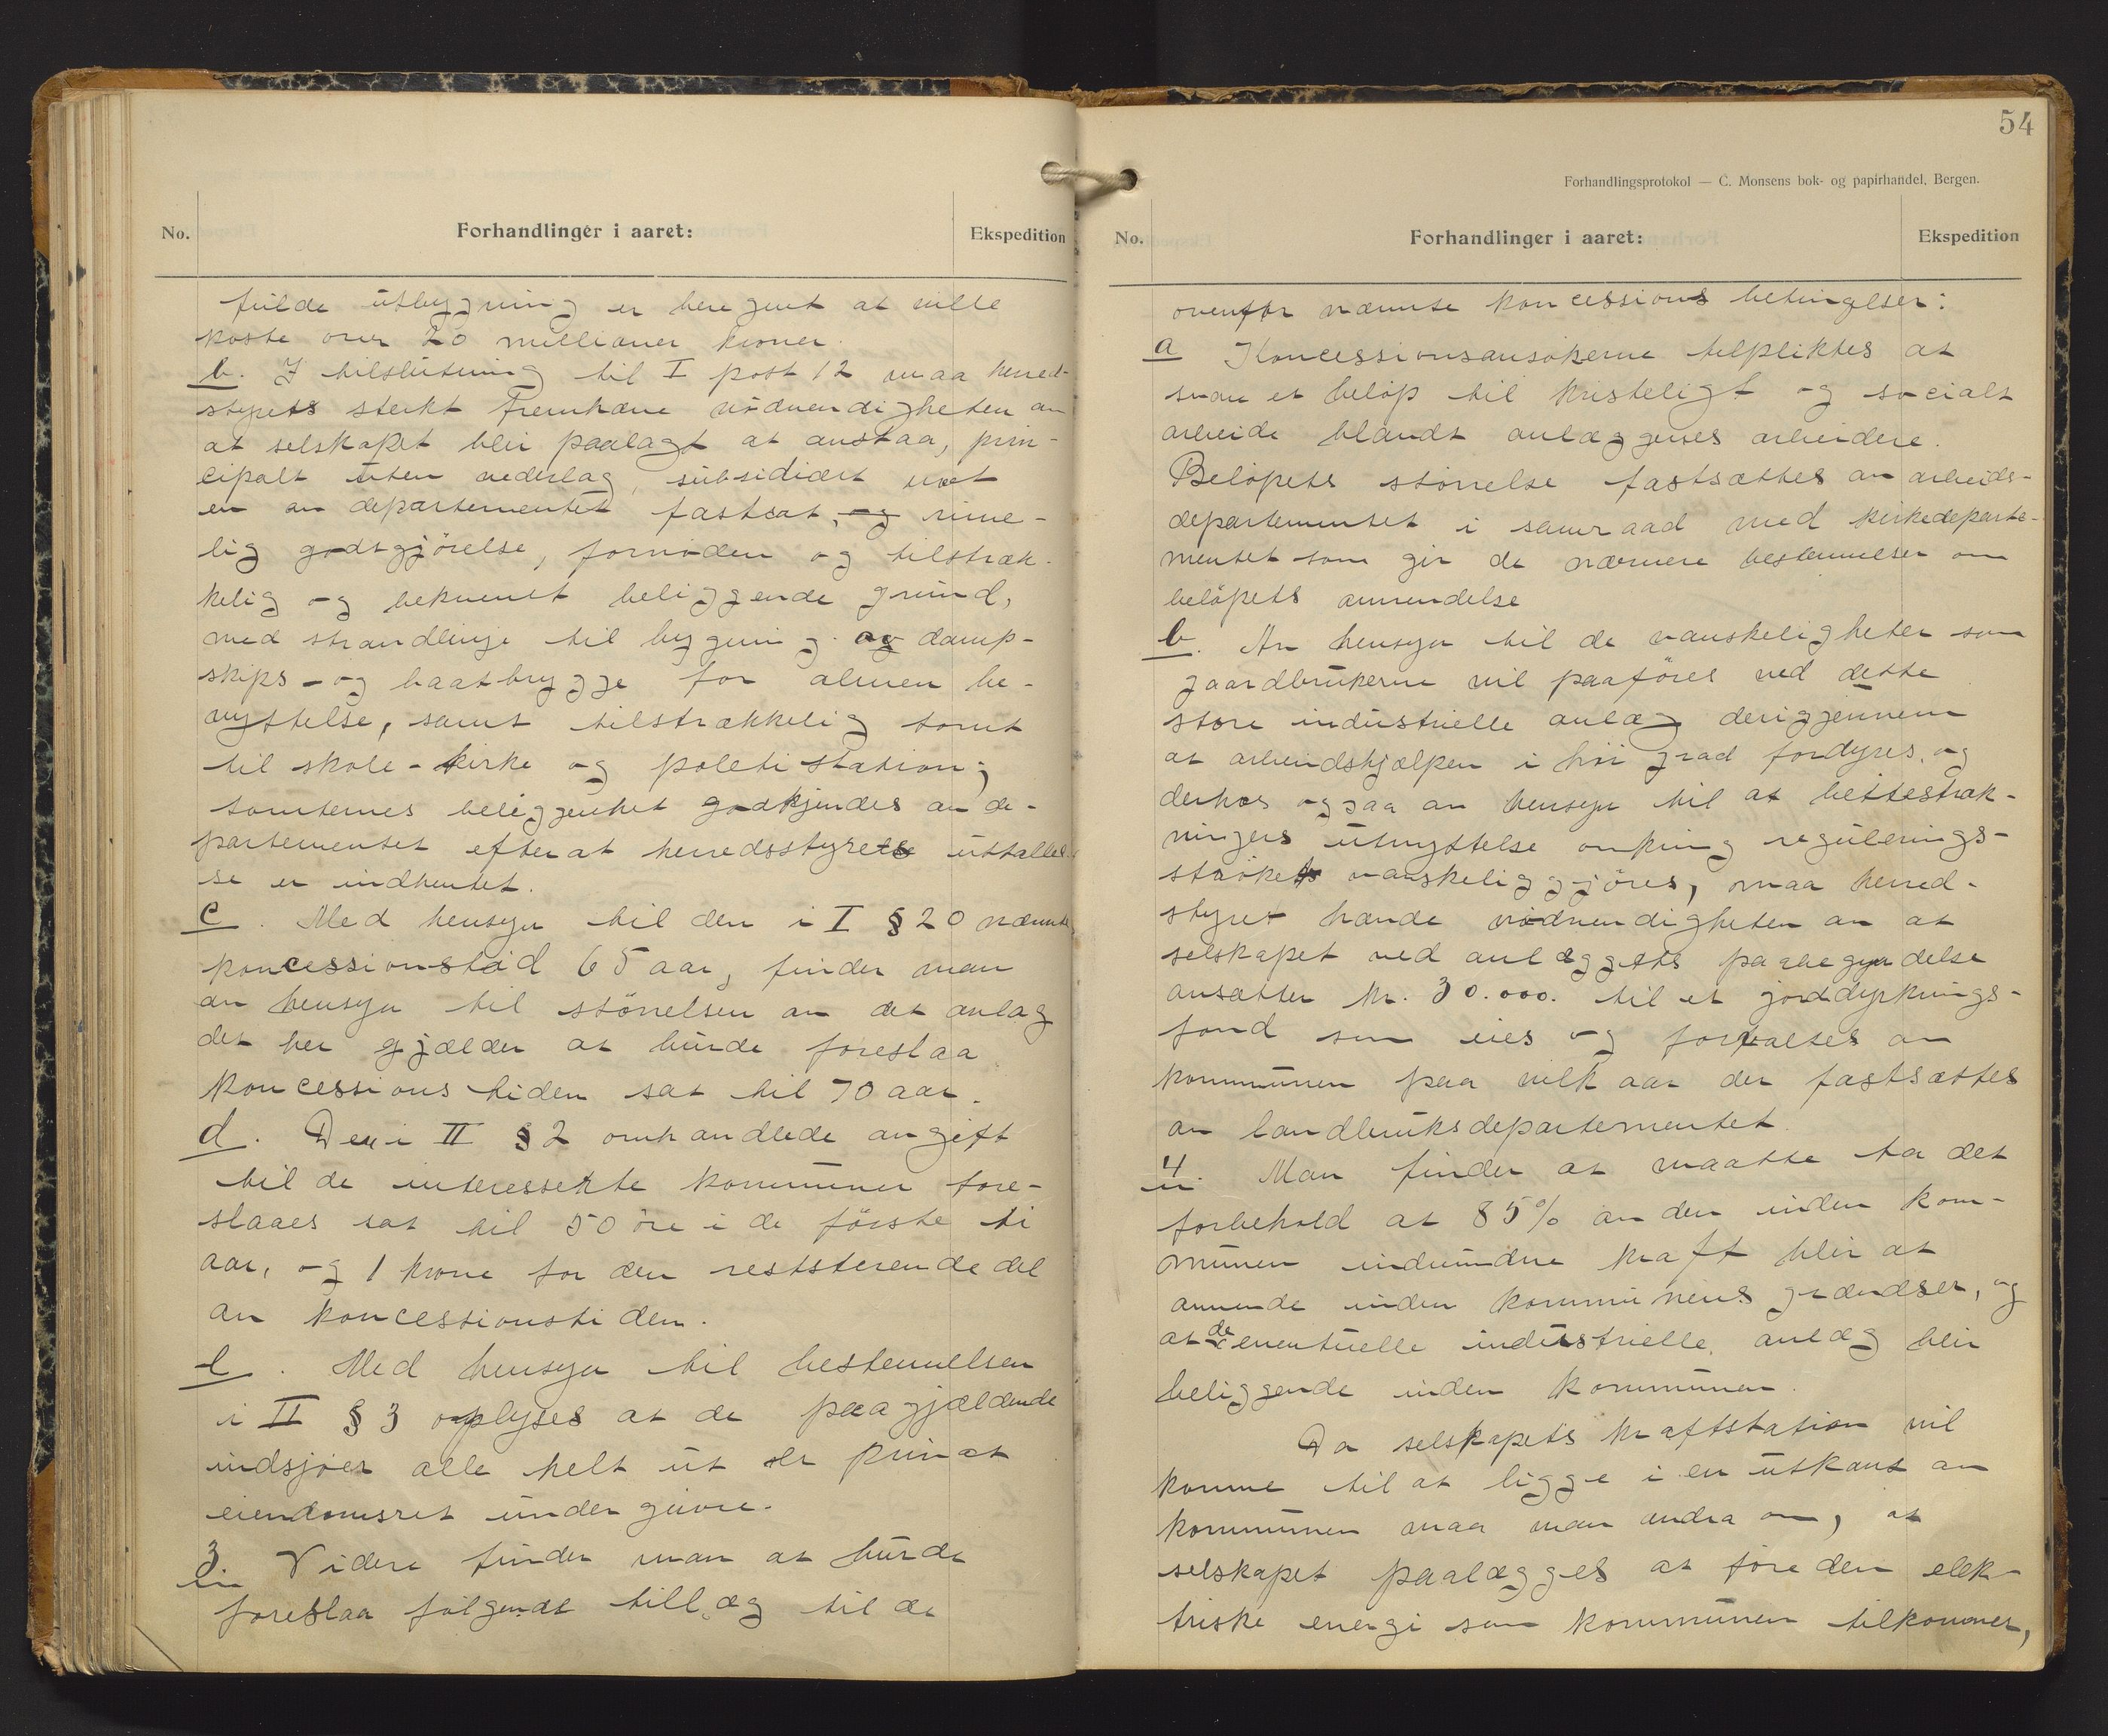 No.
Forhandlinger i aaret:
Ekspedition
fulde utbygning er beregnet at ville
koste over 20 millioner kroner.
b. I tilslutning til I post 12 maa herred-
styrets sterkt fremhæve nødvendigheten av
at selskapet blir paalagt at avstaa, prin-
cipalt uten vederlag, subsidiært mot
en av departementet fastsat, og rime-
lig godtgjørelse, fornøden og tilstræk-
kelig og bekvemt beliggende grund,
med strandlinje til bygning av damp-
skips- og baatbrygge for almen be-
nyttelse, samt tilstrækkelig tomt
til skole- kirke og politistation;
tomternes beliggenhet godkjendes av de-
partementet efter at herredsstyrets uttallel-
se er indhentet.
c. Med hensyn til den i I § 20 nævnte
koncessionstid 65 aar, finder man
av hensyn til størrelsen av det anlæg
det her gjælder at burde foreslaa
koncessionstiden sat til 70 aar.
d. Den i II § 2 omhandlede avgift
til de interesserte kommuner fore-
slaaes sat til 50 øre i de første ti
aar, og 1 krone for den reststerende del
av koncessionstiden.
e. Med hensyn til bestemmelsen
i II § 3 oplyses at de paagjældende
indsjøer alle helt ut er privat
eiendomsret undergivne.
3. Videre finder man at burde
foreslaa følgende tillæg til de
54
Forhandlingsprotokol — C. Monsens bok- og papirhandel, Bergen.
No.
Forhandlinger i aaret:
Ekspedition
ovenfor nævnte koncessions betingelser:
a Koncessionsansøkerne tilpliktes at
svare et beløp til kristeligt og socialt
arbeide blandt anlæggenes arbeidere.
Beløpets størrelse fastsættes av arbeids-
departementet i samraad med kirkedeparte-
mentet som gir de nærmere bestemmelser om
beløpets anvendelse
b. Av hensyn til de vanskeligheter som
gaardbrukerne vil paaføres ved dette
store industrielle anlæg derigjennem
at arbeidshjælpen i høi grad fordyres, og
derhos ogsaa av hensyn til at beitestræk-
ningers utnyttelse omkring regulerings-
strøket vanskeliggjøres, maa herred-
styret hævde nødvendigheten av at
selskapet ved anlæggets paabegyndelse
avsætter kr. 30.000. til et jorddyrknings-
fond som eies og forvaltes av
kommunen paa vilkaar der fastsættes
av landbruksdepartementet.
4. Man finder at maatte ta det
forbehold at 85% av den inden kom-
munen indvundne kraft blir at
anvende inden kommunens grændser, og
at de eventuelle industrielle anlæg blir
beliggende inden kommunen.
Da selskapets kraftstation vil
komme til at ligge i en utkant av
kommunen maa man andra om, at
selskapet paalægges at føre den elek-
triske energi som kommunen tilkommer,